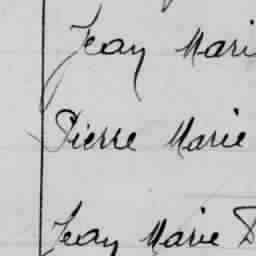 Jean Mari
Pierre Marie
Jean Marie